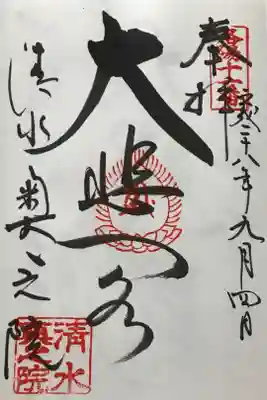 奉拝
平成二十八年九月四日
洛陽十一番
大悲閣
清水奥之院
清水
奥之院